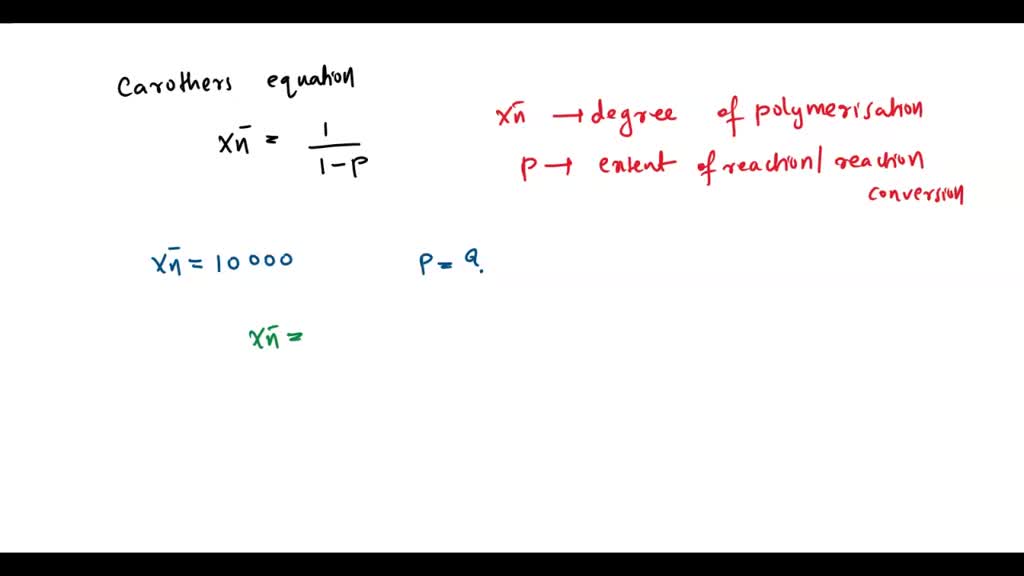 Carothers equation
x̄n = 1 / 1-p
x̄n → degree of polymerisation
p → extent of reaction/ reaction
conversion
x̄n = 10000
p = ?
x̄n =